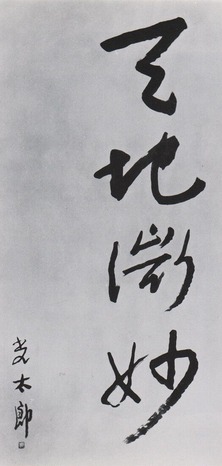 天地微妙
光太郎